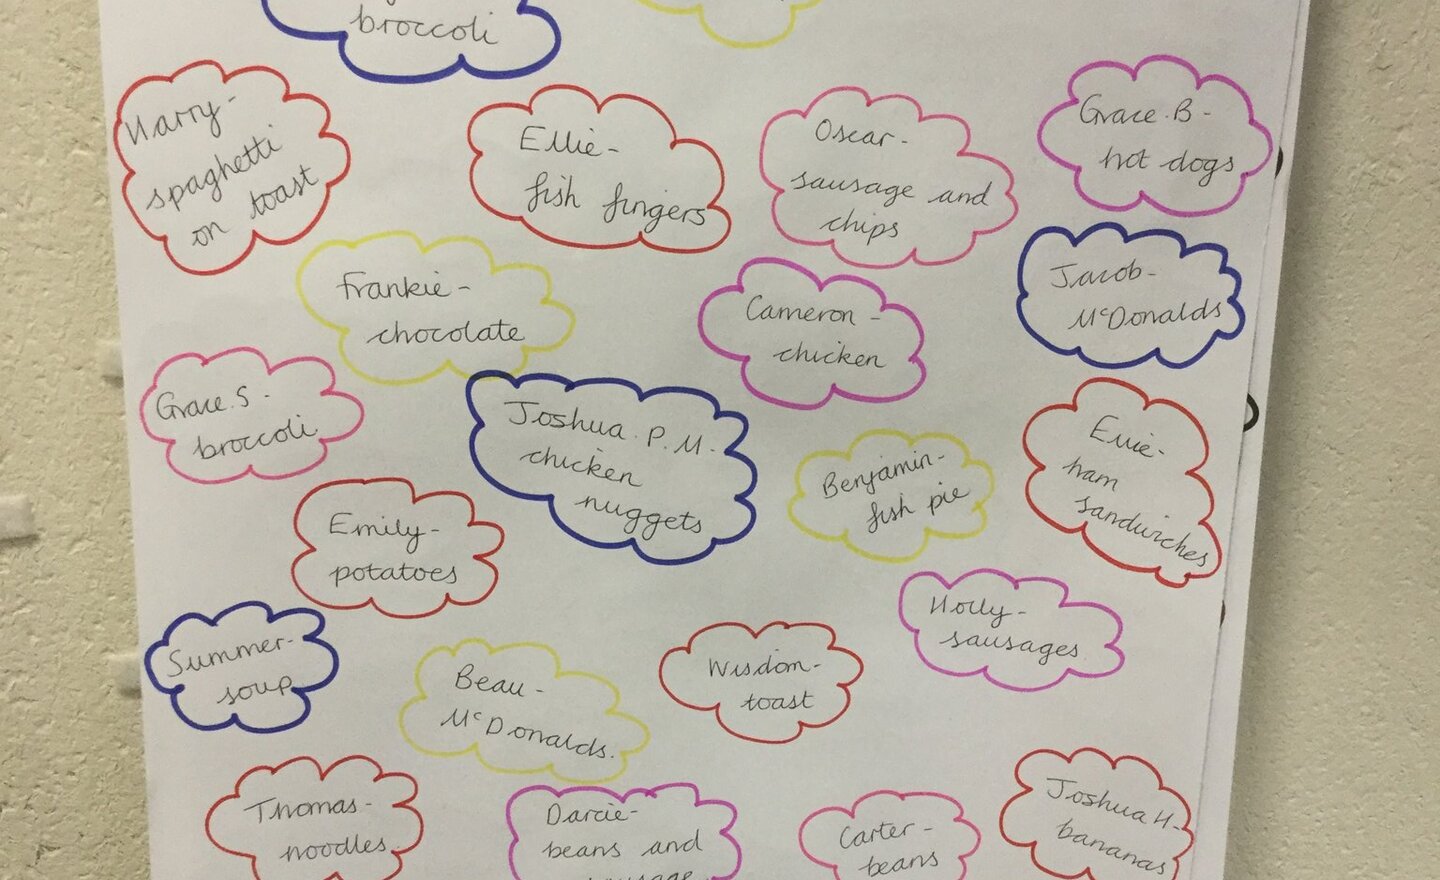 broccoli
Harry-
spaghetti
on toast
Ellie-
fish fingers
Oscar-
sausage and
chips
Grace.B-
hot dogs
Frankie-
chocolate
Cameron-
chicken
Jacob-
McDonalds
Grace.S-
broccoli
Joshua.P.M.-
chicken
nuggets
Benjamin-
fish pie
Evie-
ham
sandwiches
Emily-
potatoes
Holly-
sausages
Summer-
soup
Beau-
McDonalds.
Wisdom-
toast
Thomas-
noodles
Darcie-
beans and
sausage
Carter-
beans
Joshua H-
bananas